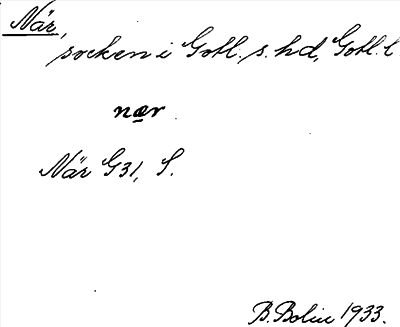 När,
socken i Gotl. s. hd, Gotl. l
nær.
När G31, S.
B. Bolin 1933.